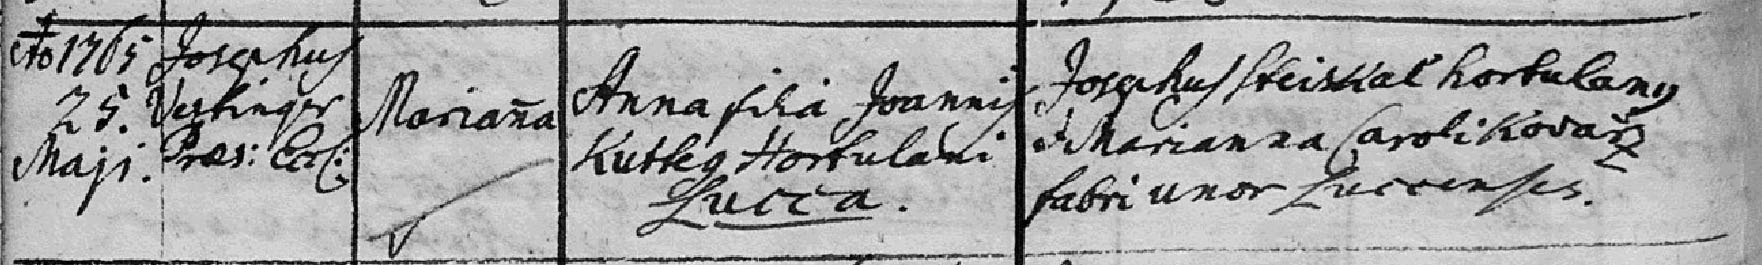 Ao 1765
25.
Maji.
Josephus
Vestinger
Præs: Eccl:
Mariaña
Anna filia Joannis
Kutteg Hortulani
Lucca.
Josephus Steiskal hortulanus
& Marianna Caroli Kovarz
fabri uxor Luccenses.